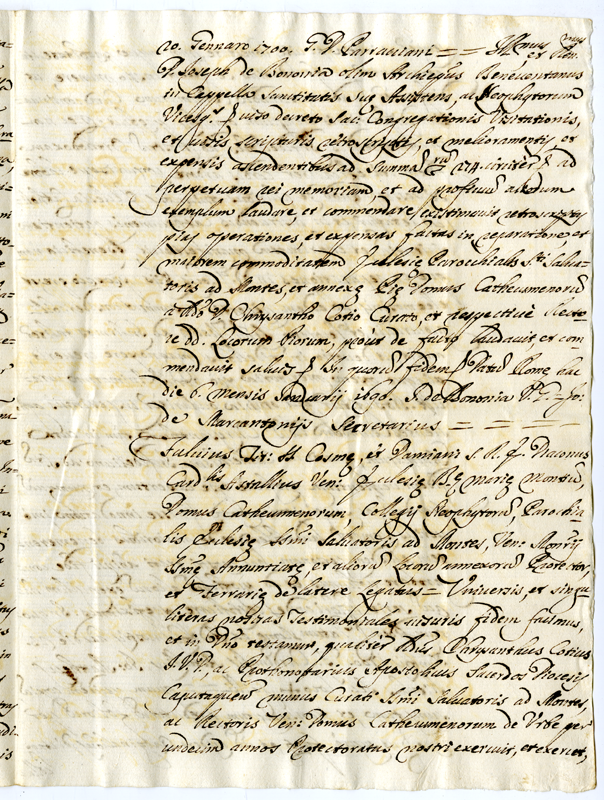 20. Gennaro 1700. T. V. Parracciani = = Ill.mus et Rev.mus
P. Joseph de Bononia olim Archiep̃us Beneventanus
in Cappella Sanctitatis Suę Assistens, ac Neophytorum
Vicesg.s viso decreto Sac: Congregationis Visitationis,
et iuratis scripturis retroscriptis, et melioramentis, et
expensis ascendentibus ad summã 274. circiter ad
perpetuam rei memoriam, et ad profituũ aliorum
exemplum laudare, et commendare existimavit retroscriptas
pias operationes, et expensas factas in reparatione, et
maiorem commoditatem Ecclesię Parochialis S.ti Salva=
toris ad Montes, et annexę Pię Domus Cathecumenorũ
a Adm̃ P. Chrysantho Cotio Curato, et respective Recto=
re dd. Locorum Piorum, prout de facto laudavit et com
mendavit salvis In quorũ fidem Datũ Romę hac
die 6. mensis Januarij 1690. J. de Bononia V. G. = Jo:
de Marcantonijs Secretarius = = = =
Fulvius Tt: SS. Cosmę, et Damiani S. R. E. Diaconus
Card.lis Astallius Ven: Ecclesię B.ę Marię Montiũ,
Domus Cathecumenorum, Collegij Neophytorũ, Parochia=
lis Ecclesię Ssm̃i Salvatoris ad Montes, Ven: Mon.rij
Ssm̃ę Annuntiatę, et aliorũ Locorũ annexorũ Protector,
et Ferrarię de latere Legatus = Universis, et singu=
literas nostras testimoniales visuris fidem facimus,
et in Dño testamur, qualiter Adm̃ Chrysanthus Cotius
J. V. D., ac Prothonotarius Apostolicus Sacerdos Diocesis
Caputaquen munus Curati Ssm̃i Salvatoris ad Montes,
ac Rectoris Ven: Domus Cathecumenorum de Urbe per
undecim annos Protectoratus nostri exercuit, et exercet,